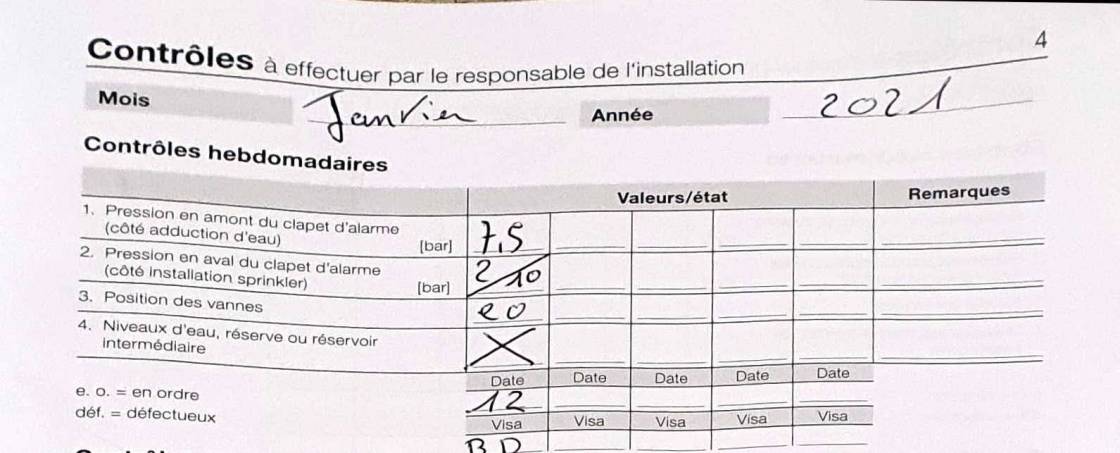 4
Contrôles à effectuer par le responsable de l'installation
Mois Janvier Année 2021
Contrôles hebdomadaires
Valeurs/état Remarques
1. Pression en amont du clapet d'alarme
(côté adduction d'eau) [bar] 7,5
2. Pression en aval du clapet d'alarme
(côté installation sprinkler) [bar] 2/10
3. Position des vannes eo
4. Niveaux d'eau, réserve ou réservoir
intermédiaire X
Date Date Date Date Date
e. o. = en ordre 12
déf. = défectueux Visa Visa Visa Visa Visa
BD